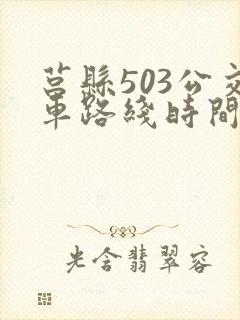 莒縣503公交
車路綫時間
光含翡翠容